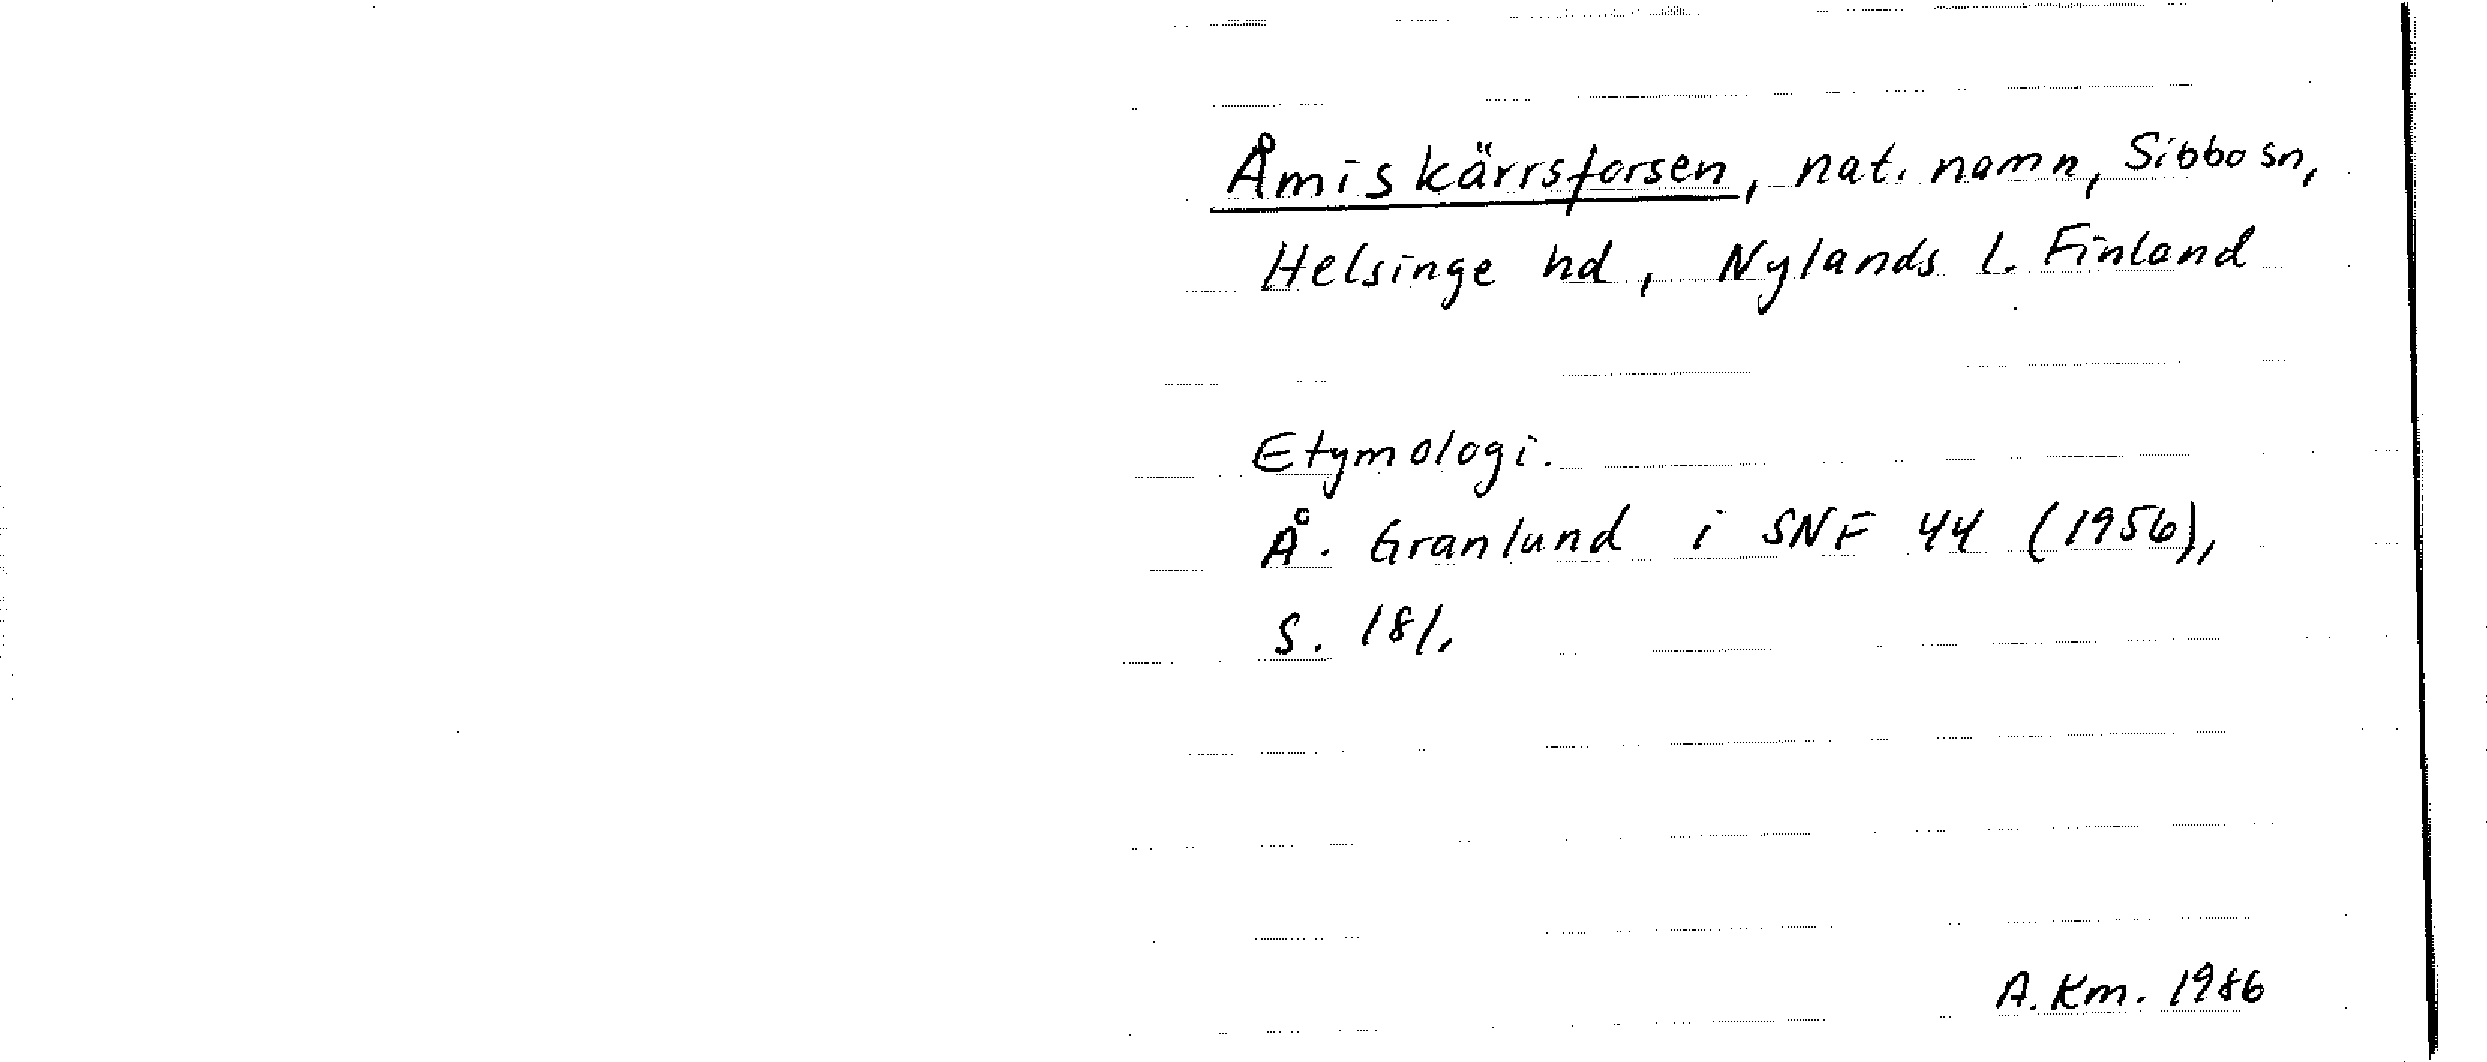 Åmiskärrsforsen, nat. namn, Sibbo sn,
Helsinge hd, Nylands l. Finland
Etymologi.
Å. Granlund i SNF 44 (1956),
s. 181.
A. Km. 1986